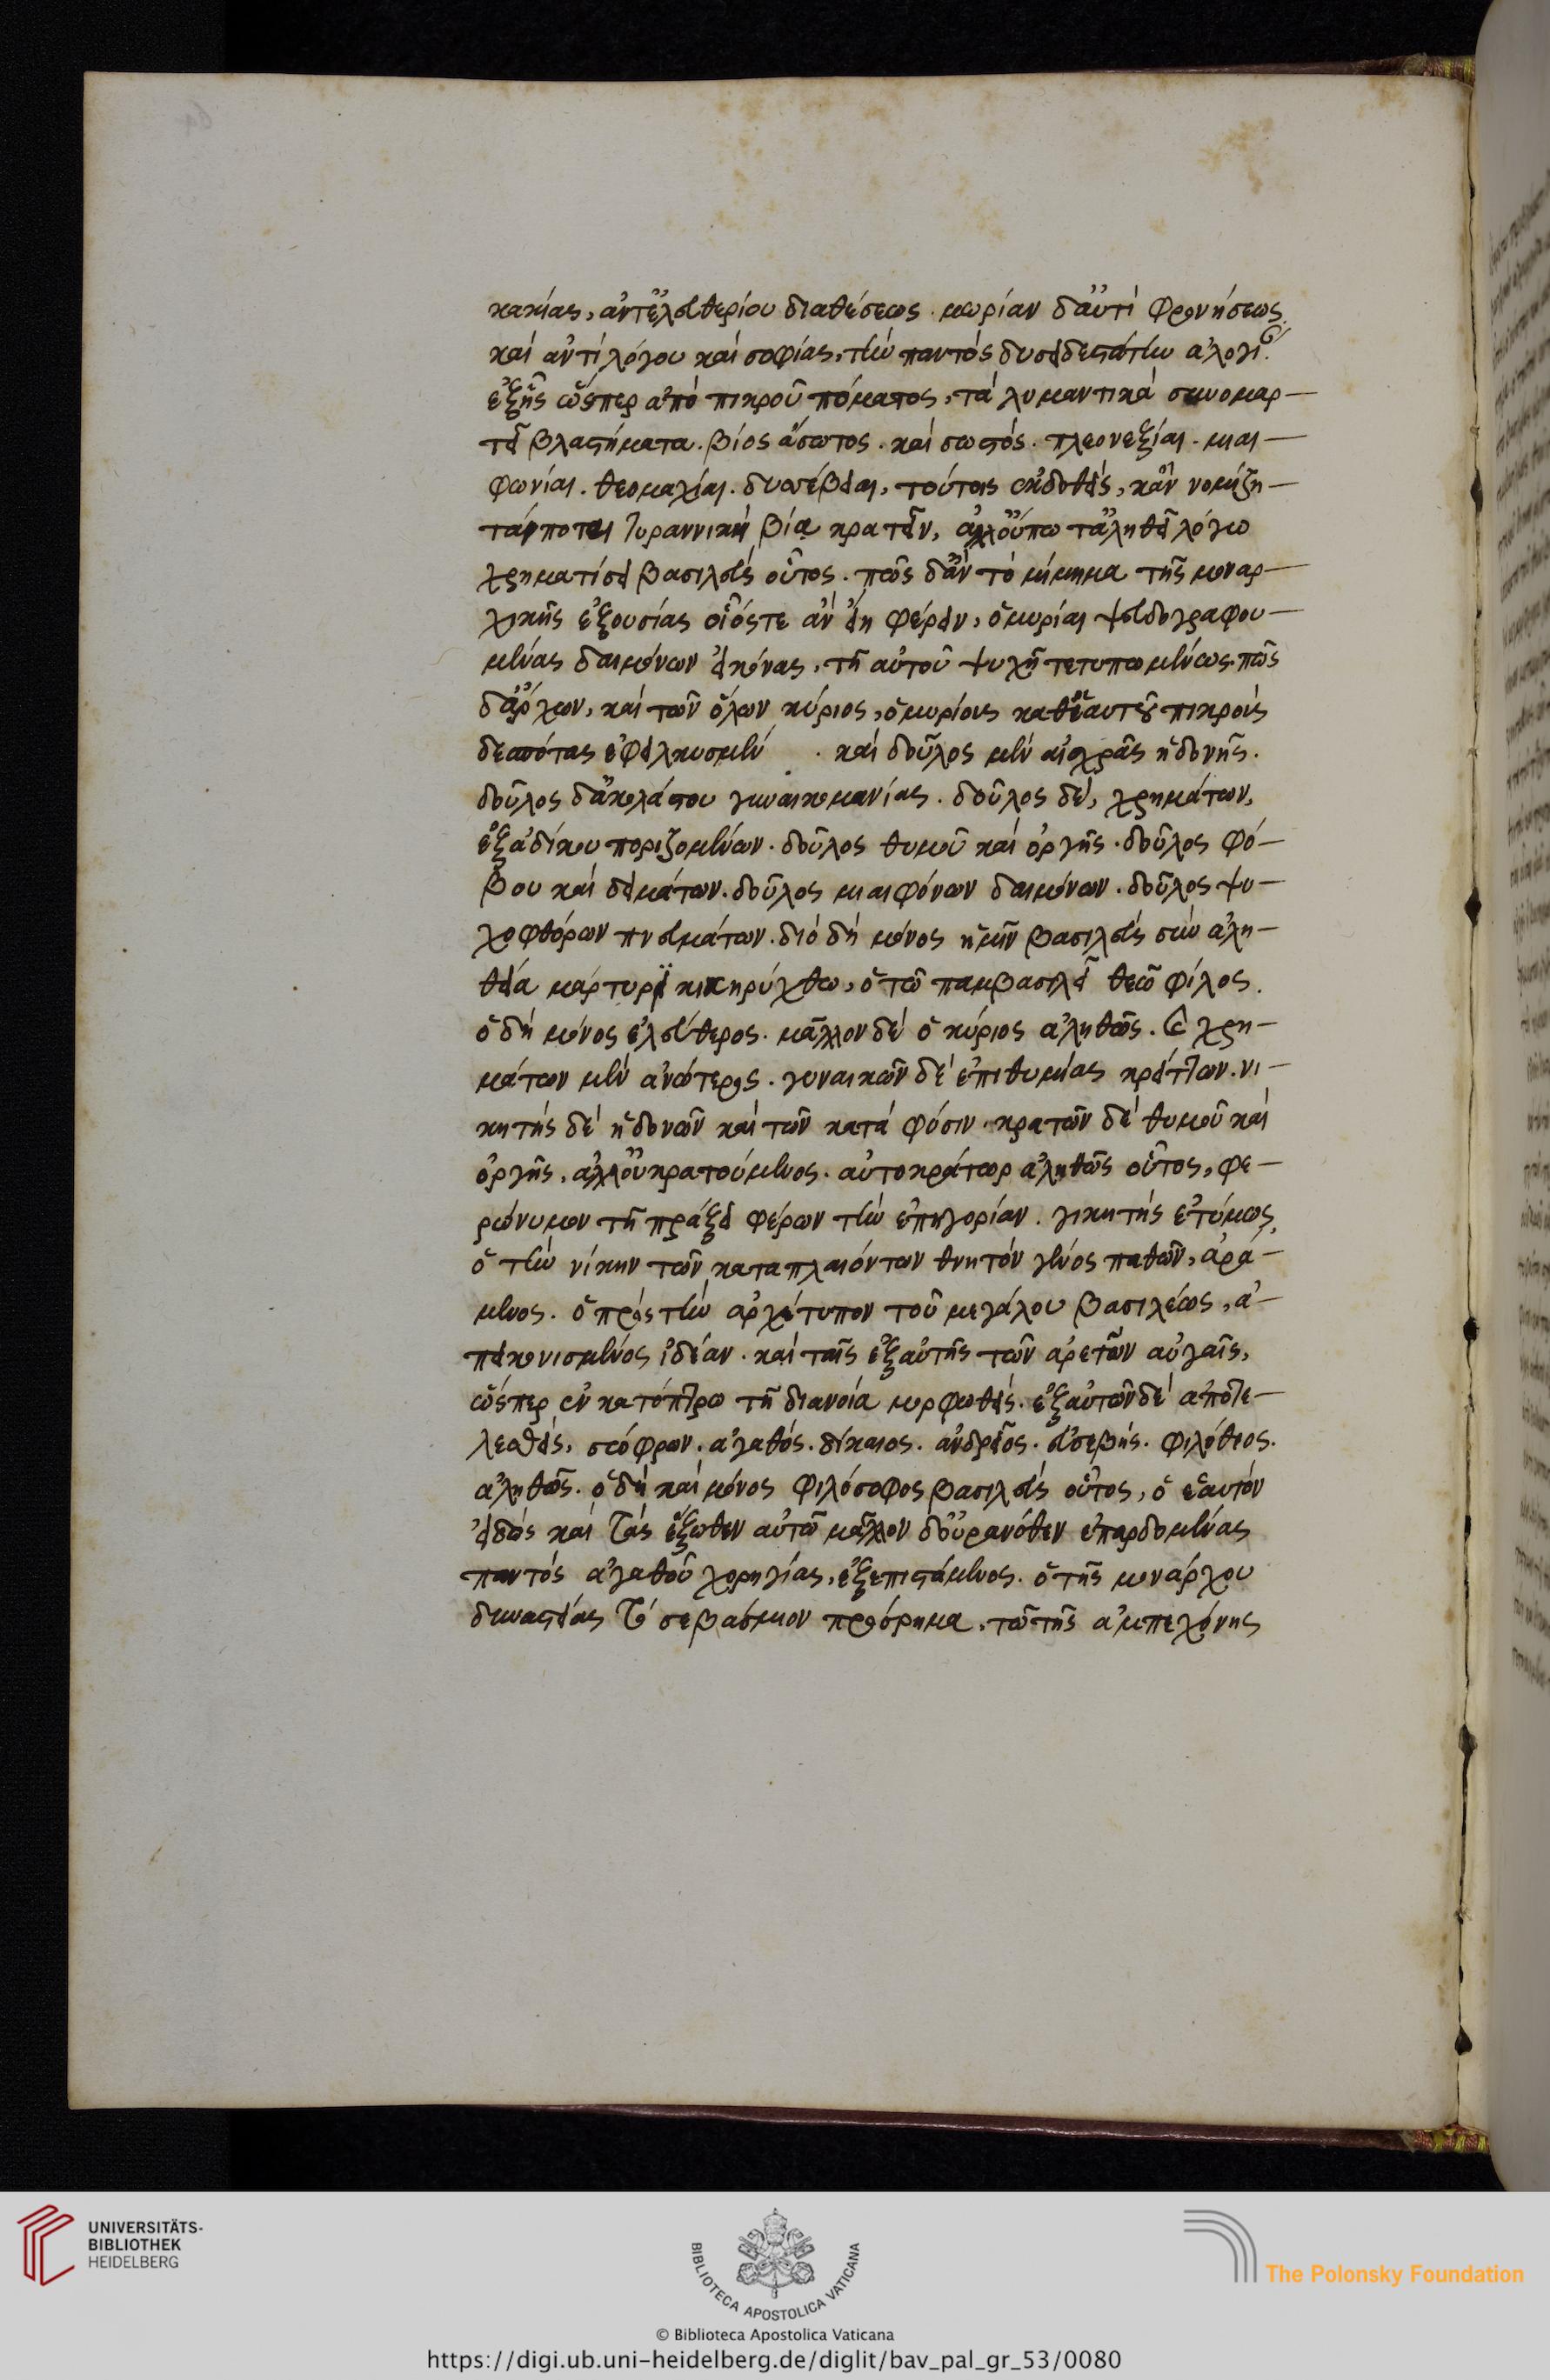 κακίας, ἀντ' ἐλευθερίου διαθέσεως. μωρίαν δ' ἀντὶ φρονήσεως
καὶ ἀντὶ λόγου καὶ σοφίας, τὴν παντὸς δυσειδεστάτην ἀλογί
ἑξῆς ὥσπερ ἀπὸ πικροῦ πόματος, τὰ λυμαντικὰ συνομαρ-
τεῖ βλαστήματα. βίος ἄσωτος. πλεονεξίαι. μιαι-
φωνίαι. θεομαχίαι. δυσσέβειαι, τούτοις ἐκδοθεὶς, κἂν νομίζη-
ταί ποτε τυραννικῇ βίᾳ κρατεῖν, ἀλλ' οὔπω τἀληθεῖ λόγω
χρηματίσει βασιλεὺς οὗτος. πῶς δ' ἂν τὸ μίμημα τῆς μοναρ-
χικῆς ἐξουσίας οἷός τε ἂν εἴη φέρειν, ὁ μυρίαι ψευδογραφου-
μένας δαιμόνων εἰκόνας, τῆ αὐτοῦ ψυχῆ τετυπωμένως. πῶς
δ' ἄρχων, καὶ τῶν ὅλων κύριος, ὁ μυρίους καθ' ἑαυτοῦ πικροὺς
δεσπότας ἐφειλκυσμέν . καὶ δοῦλος μὲν αἰσχρᾶς ἡδονῆς.
δοῦλος δ' ἀκολάστου γυναικομανίας. δοῦλος δὲ, χρημάτων,
ἐξ ἀδίκου ποριζομένων. δοῦλος θυμοῦ καὶ ὀργῆς. δοῦλος φό-
βου καὶ δειμάτων. δοῦλος μιαιφόνων δαιμόνων. δοῦλος ψυ-
χοφθόρων πνευμάτων. διὸ δὴ μόνος ἡμῖν βασιλεὺς σὺν ἀλη-
θεία μάρτυρι κηρύχθω, ὁ τῶ παμβασιλεῖ θεῶ φίλος.
ὁ δὴ μόνος ἐλεύθερος. μᾶλλον δὲ ὁ κύριος ἀληθῶς. ὁ χρη-
μάτων μὲν ἀνώτερος. γυναικῶν δὲ ἐπιθυμίας κρείττων. νι-
κητὴς δὲ ἡδονῶν καὶ τῶν κατὰ φύσιν. κρατῶν δὲ θυμοῦ καὶ
ὀργῆς, ἀλλ' οὐ κρατούμενος. αὐτοκράτωρ ἀληθῶς οὗτος, φε-
ρώνυμον τῆ πράξει φέρων τὴν ἐπηγορίαν. νικητὴς ἐτύμως,
ὁ τὴν νίκην τῶν καταπλαιόντων θνητὸν γένος παθῶν, ἀρά-
μενος. ὁ πρὸς τὴν ἀρχέτυπον τοῦ μεγάλου βασιλέως, ἀ-
πεικονισμένος ἰδέαν. καὶ ταῖς ἐξ αὐτῆς τῶν ἀρετῶν αὐγαῖς,
ὥσπερ ἐν κατόπτρω τῆ διανοία μορφωθείς. ἐξ αὐτῶν δὲ ἀποτε-
λεσθεὶς, σώφρων. ἀγαθός. δίκαιος. ἀνδρεῖος. εὐσεβής. φιλόθεος.
ἀληθῶς. ὁ δὴ καὶ μόνος φιλόσοφος βασιλεὺς οὗτος, ὁ ἑαυτὸν
εἰδὼς καὶ τὰς ἔξωθεν αὐτῶ μᾶλλον δ' οὐρανόθεν ἐπαρδομένας
παντὸς ἀγαθοῦ χορηγίας, ἐξεπιστάμενος. ὁ τῆς μονάρχου
δυναστείας τὸ σεβάσμιον πρόσρημα, τῶ τῆς ἀμπεχόνης
UNIVERSITÄTS-
BIBLIOTHEK
HEIDELBERG
BIBLIOTECA APOSTOLICA VATICANA
© Biblioteca Apostolica Vaticana
The Polonsky Foundation
https://digi.ub.uni-heidelberg.de/diglit/bav_pal_gr_53/0080